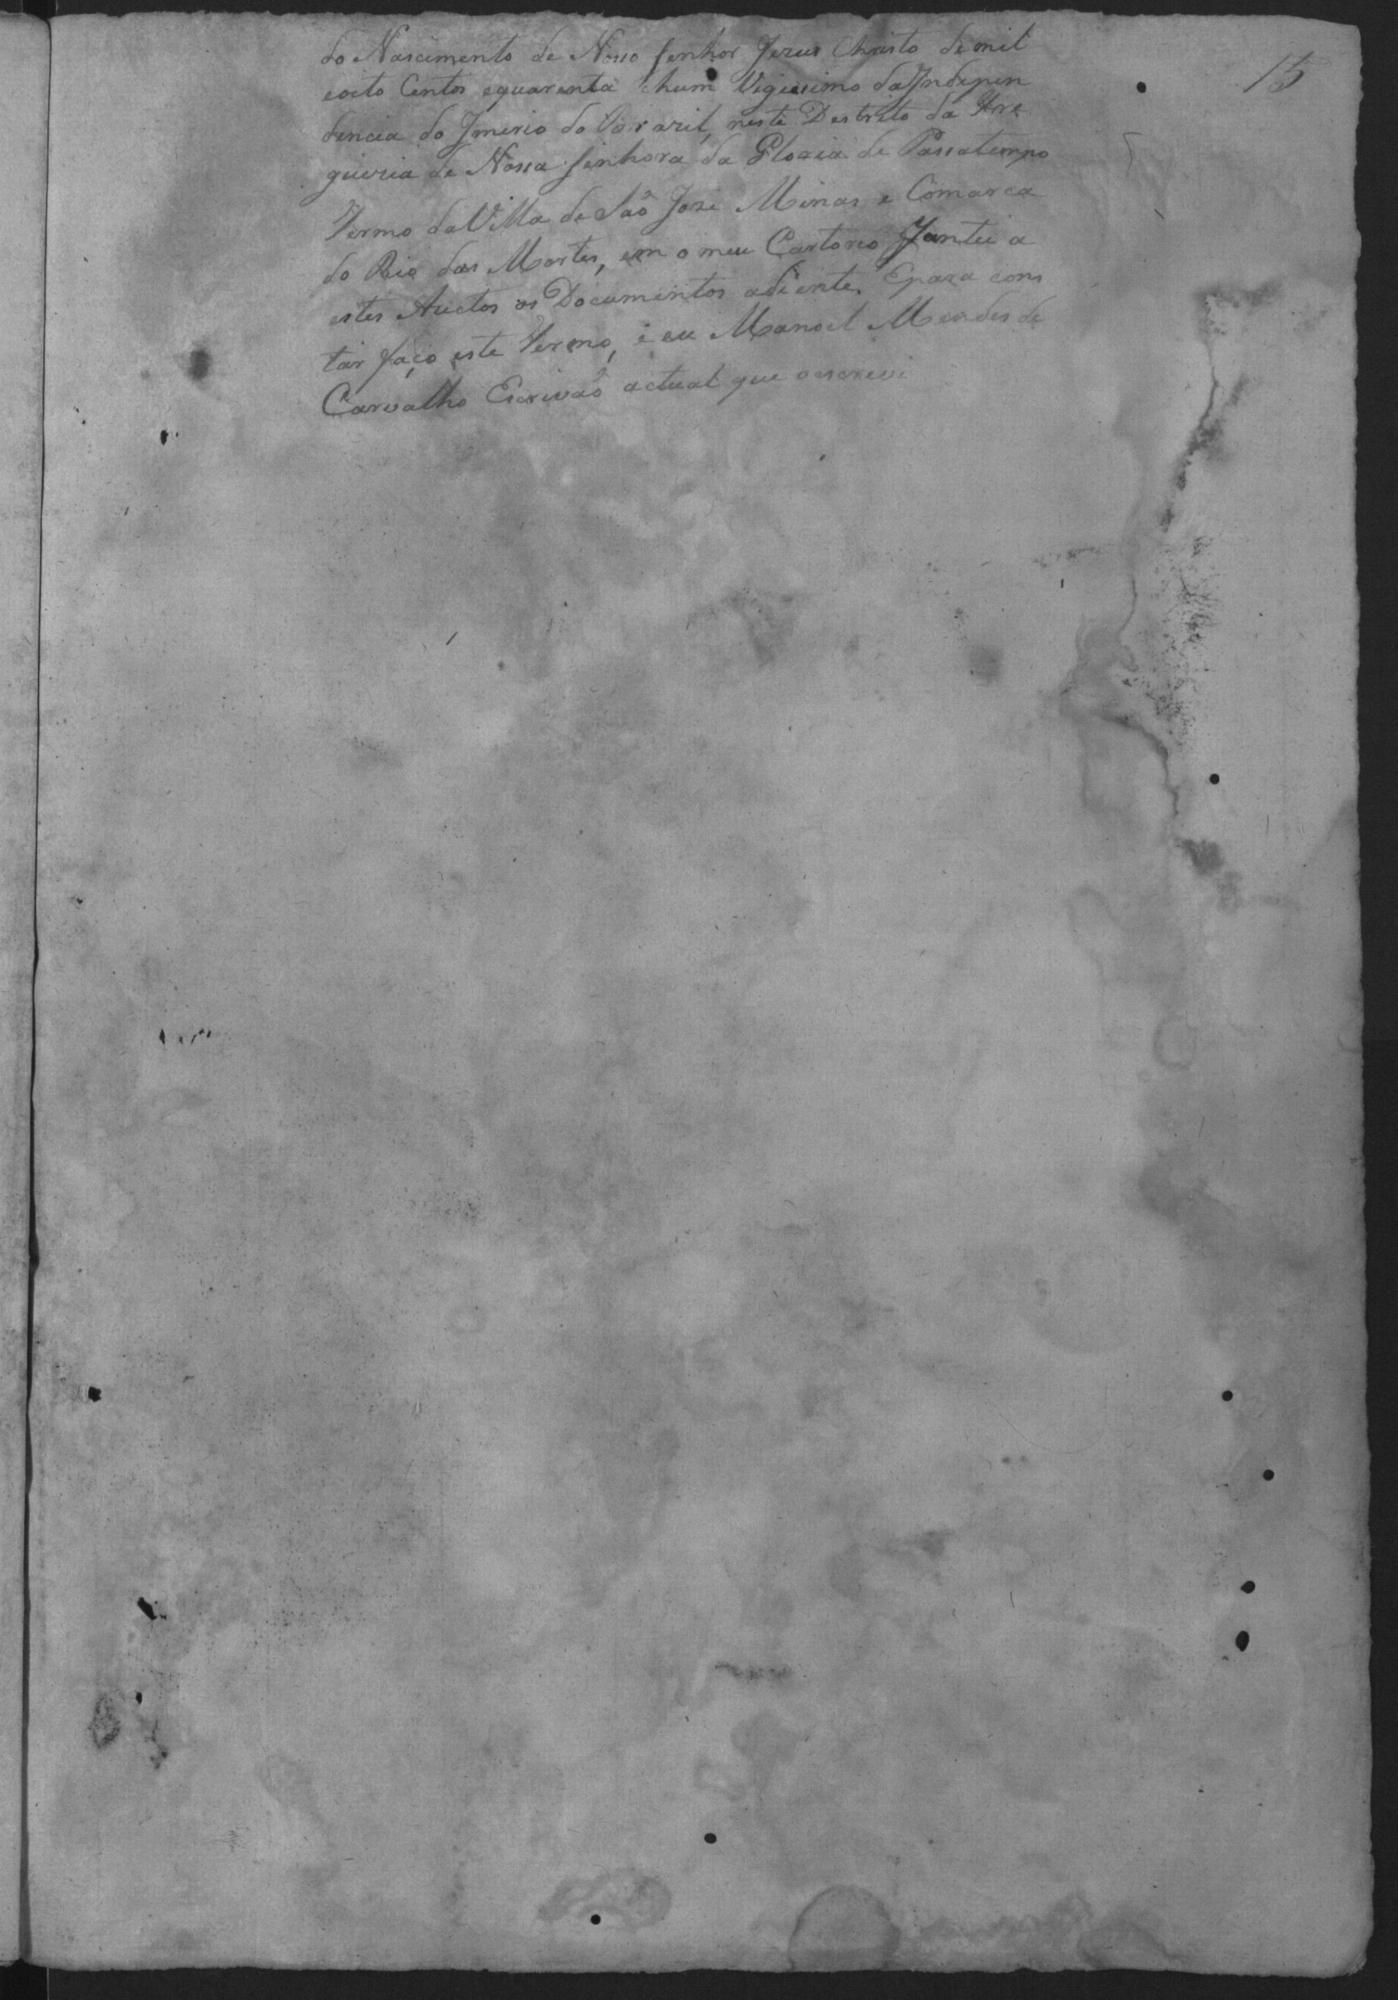 15
do Nascimento de Nosso Senhor Jezus Christo de mil
eoito Centos equarenta ehum Vigessimo da Indepen
dencia do Imperio do Brazil, neste Destrito da Fre
gueria de Nossa Senhora da Gloria de Passatempo
Termo da Villa de Saõ Joze Minas e Comarca
do Rio das Mortes, em o meu Cartorio Juntei a
estes Auctos os Documentos adiente. Epara cons
tar faço este Termo, e eu Manoel Mendes de
Carvalho Escrivaõ actual que oescrevi